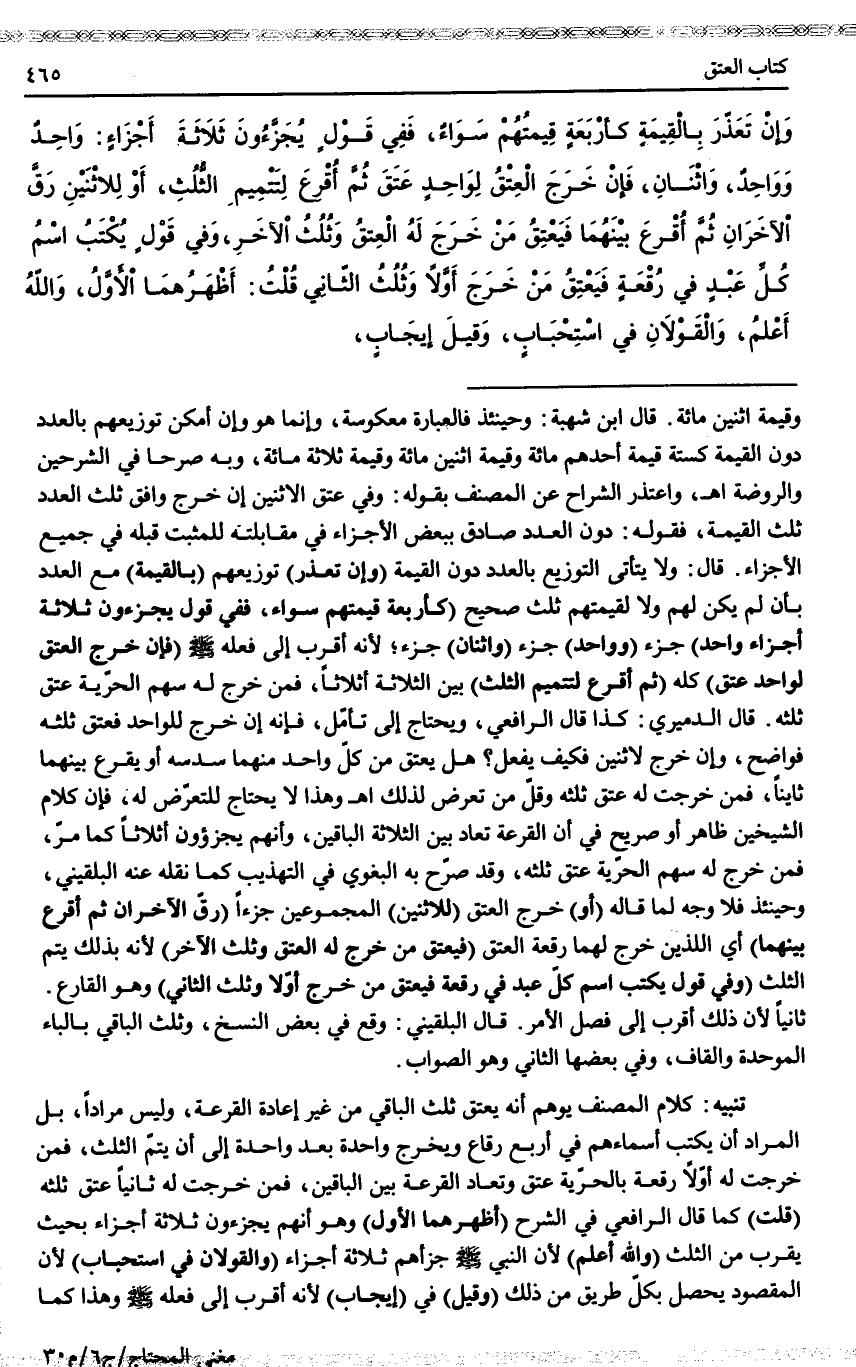 كتاب العتق
٤٦٥
وَإِنْ تَعَذَّرَ بِالْقِيمَةِ كَأَرْبَعَةٍ قِيمتُهُمْ سَوَاءٌ، فَفِي قَوْلٍ يُجَزَّءُونَ ثَلَاثَةَ أَجْزَاءٍ: وَاحِدٌ
وَوَاحِدٌ، وَاثْنَانِ، فَإِنْ خَرَجَ الْعِتْقُ لِوَاحِدٍ عَتَقَ ثُمَّ أُقْرِعَ لِتَتْمِيمِ الثُّلُثِ، أَوْ لِلاثْنَيْنِ رَقَّ
الْآخَرَانِ ثُمَّ أُقْرِعَ بَيْنَهُمَا فَيَعْتِقُ مَنْ خَرَجَ لَهُ الْعِتقُ وَثُلُثُ الْآخَرِ، وَفي قَوْلٍ يُكْتَبُ اسْمُ
كُلِّ عَبْدٍ في رُقْعَةٍ فَيَعْتِقُ مَنْ خَرَجَ أَوَّلًا وَثُلُثُ الثَّانِي قُلْتُ: أَظْهَرُهمَا الْأَوَّلُ، وَاللَّهُ
أَعْلمُ، وَالْقَوْلَانِ في اسْتِحْبَابٍ، وَقيلَ إيجَابٍ،
وقيمة اثنين مائة. قال ابن شهبة: وحينئذ فالعبارة معكوسة، وإنما هو وإن أمكن توزيعهم بالعدد
دون القيمة كستة قيمة أحدهم مائة وقيمة اثنين مائة وقيمة ثلاثة مائة، وبه صرحا في الشرحين
والروضة اهـ، واعتذر الشراح عن المصنف بقوله: وفي عتق الاثنين إن خرج وافق ثلث العدد
ثلث القيمة، فقوله: دون العدد صادق ببعض الأجزاء في مقابلته للمثبت قبله في جميع
الأجزاء. قال: ولا يتأتى التوزيع بالعدد دون القيمة (وإن تعذر) توزيعهم (بالقيمة) مع العدد
بأن لم يكن لهم ولا لقيمتهم ثلث صحيح (كأربعة قيمتهم سواء، ففي قول يجزءون ثلاثة
أجزاء واحد) جزء (وواحد) جزء (واثنان) جزء؛ لأنه أقرب إلى فعله ﷺ (فإن خرج العتق
لواحد عتق) كله (ثم أقرع لتتميم الثلث) بين الثلاثة أثلاثاً، فمن خرج له سهم الحرّية عتق
ثلثه. قال الدميري: كذا قال الرافعي، ويحتاج إلى تأمّل، فإنه إن خرج للواحد فعتق ثلثه
فواضح، وإن خرج لاثنين فكيف يفعل؟ هل يعتق من كلّ واحد منهما سدسه أو يقرع بينهما
ثايناً، فمن خرجت له عتق ثلثه وقلّ من تعرض لذلك اهـ وهذا لا يحتاج للتعرّض له، فإن كلام
الشيخين ظاهر أو صريح في أن القرعة تعاد بين الثلاثة الباقين، وأنهم يجزؤون أثلاثاً كما مرّ،
فمن خرج له سهم الحرّية عتق ثلثه، وقد صرّح به البغوي في التهذيب كما نقله عنه البلقيني،
وحينئذ فلا وجه لما قاله (أو) خرج العتق (للاثنين) المجموعين جزءاً (رقّ الآخران ثم أقرع
بينهما) أي اللذين خرج لهما رقعة العتق (فيعتق من خرج له العتق وثلث الآخر) لأنه بذلك يتم
الثلث (وفي قول يكتب اسم كلّ عبد في رقعة فيعتق من خرج أوّلا وثلث الثاني) وهو القارع.
ثانياً لأن ذلك أقرب إلى فصل الأمر. قال البلقيني: وقع في بعض النسخ، وثلث الباقي بالباء
الموحدة والقاف، وفي بعضها الثاني وهو الصواب.
تنبيه: كلام المصنف يوهم أنه يعتق ثلث الباقي من غير إعادة القرعة، وليس مراداً، بل
المراد أن يكتب أسماءهم في أربع رقاع ويخرج واحدة بعد واحدة إلى أن يتمّ الثلث، فمن
خرجت له أوّلاً رقعة بالحرّية عتق وتعاد القرعة بين الباقين، فمن خرجت له ثانياً عتق ثلثه
(قلت) كما قال الرافعي في الشرح (أظهرهما الأول) وهو أنهم يجزءون ثلاثة أجزاء بحيث
يقرب من الثلث (والله أعلم) لأن النبي ﷺ جزأهم ثلاثة أجزاء (والقولان في استحباب) لأن
المقصود يحصل بكلّ طريق من ذلك (وقيل) في (إيجاب) لأنه أقرب إلى فعله ﷺ وهذا كما
مغني المحتاج/ج٦/م٣٠